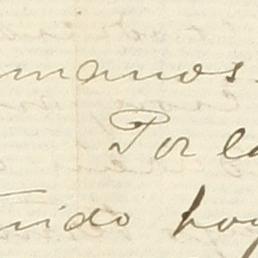 manos.
Por la
nido hoy